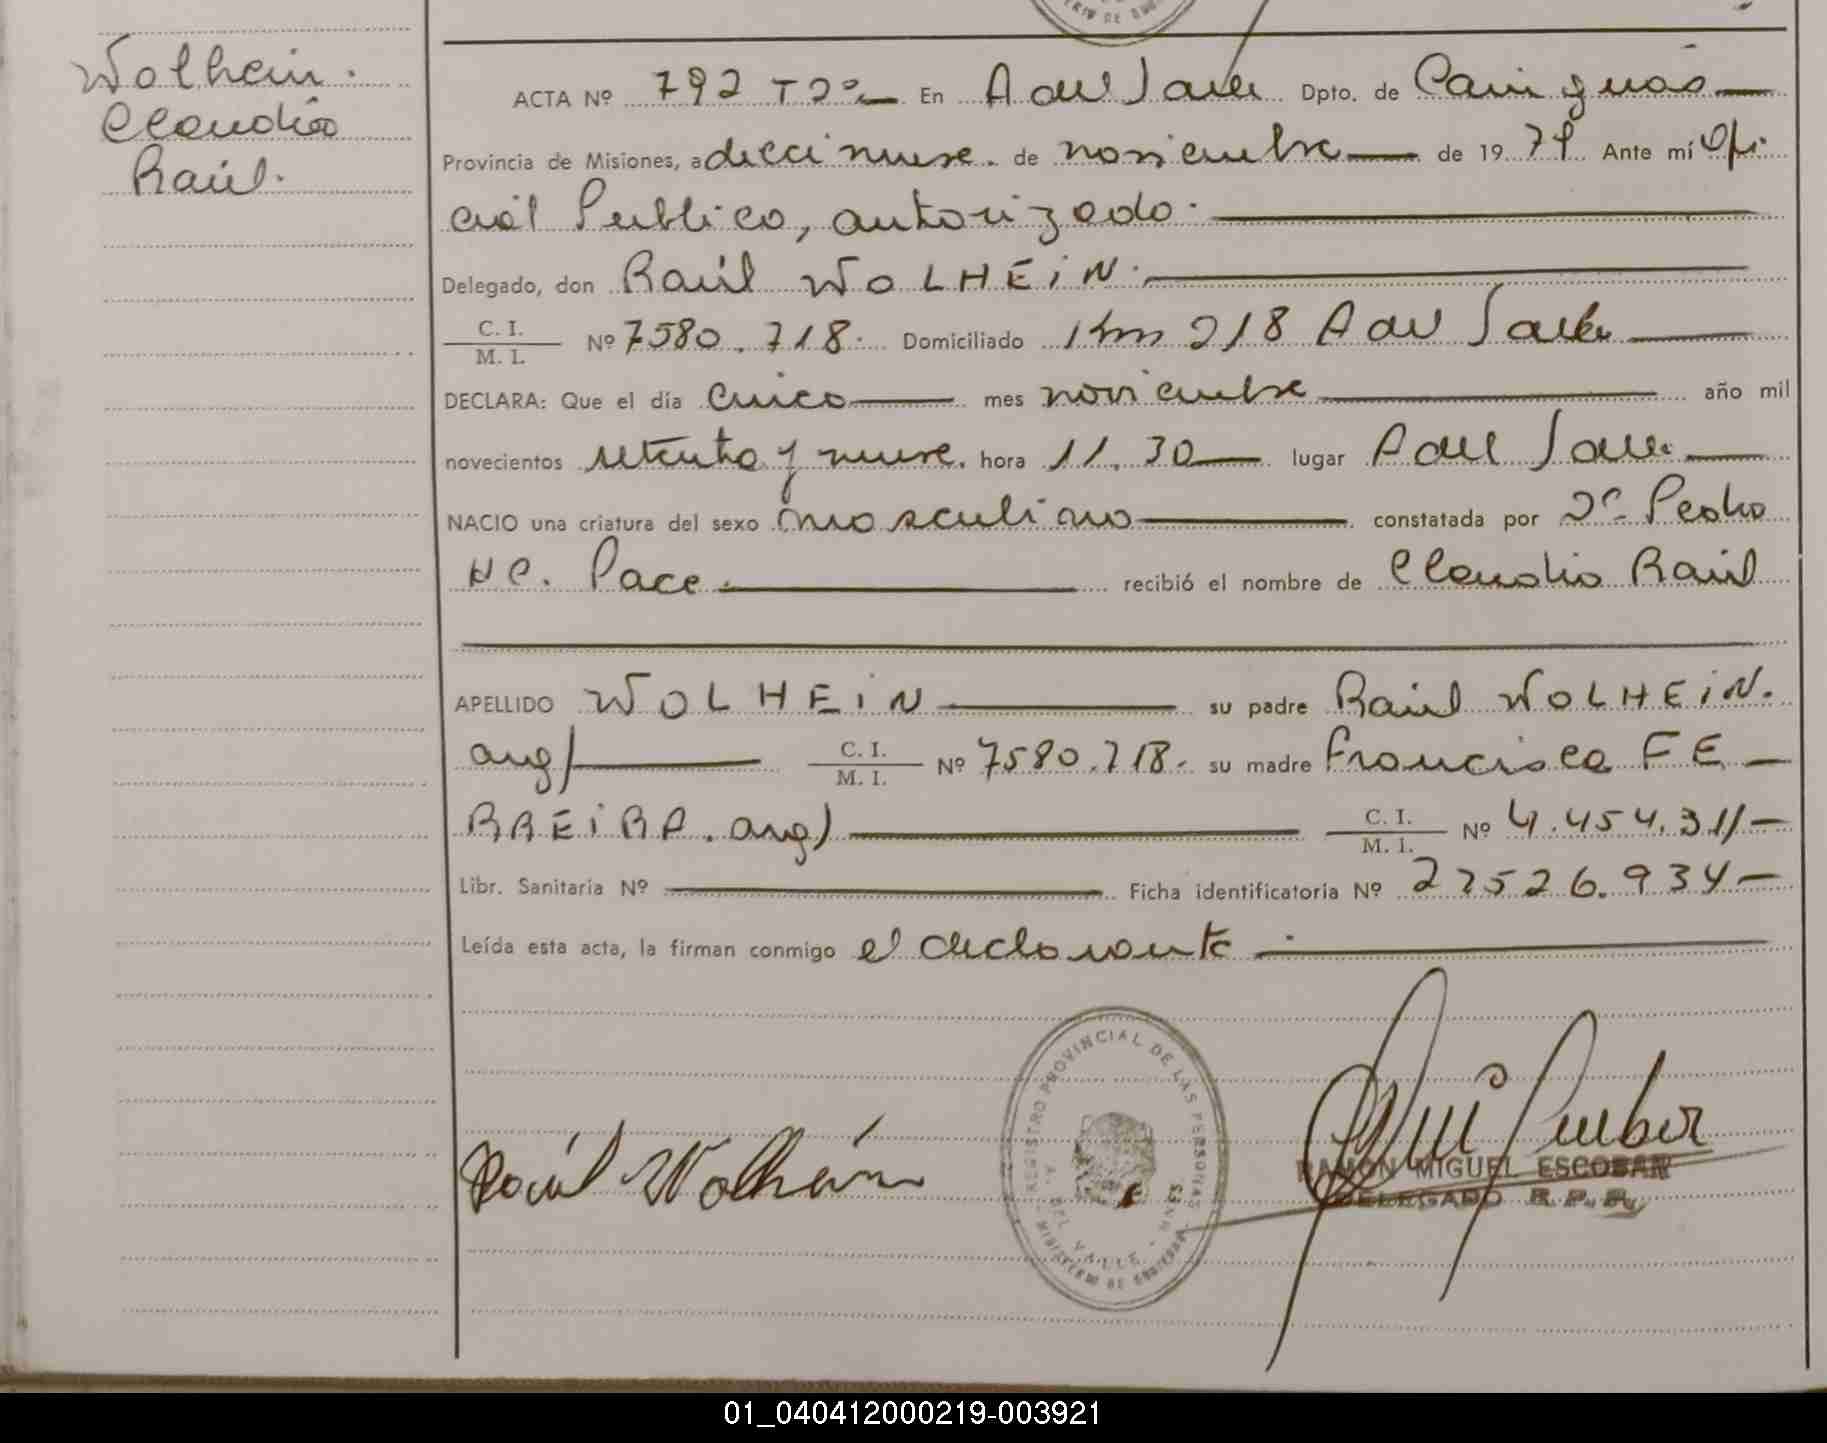 Wolhein.
Claudio
Raúl.
ACTA Nº 792 T2º En A del Valle Dpto. de Cainguás
Provincia de Misiones, a diecinueve. de noviembre de 1979. Ante mí Ofi
cial Publico, autorizado.
Delegado, don Raúl WOLHEiN.
C. I.
M. I.
Nº 7580.718. Domiciliado Km 218 A del Valle
DECLARA: Que el día cinco mes noviembre año mil
novecientos setenta y nueve. hora 11.30 lugar A del Valle
NACIO una criatura del sexo masculino constatada por Dr. Pedro
Pace recibió el nombre de Claudio Raúl
APELLIDO WOLHEiN su padre Raúl WOLHEiN.
arg/ C. I. M. I. Nº 7580.718. su madre Francisca FE
RREiRA. arg) C. I. M. I. Nº 4.454.311
Libr. Sanitaria Nº Ficha identificatoria Nº 27526.934
Leída esta acta, la firman conmigo el declarante
Raúl Wolhein
REGISTRO PROVINCIAL DE LAS PERSONAS
A. DEL VALLE - MNES.
MINISTERIO DE GOBIERNO
RAMON MIGUEL ESCOBAR
DELEGADO R.P.P.
01_040412000219-003921